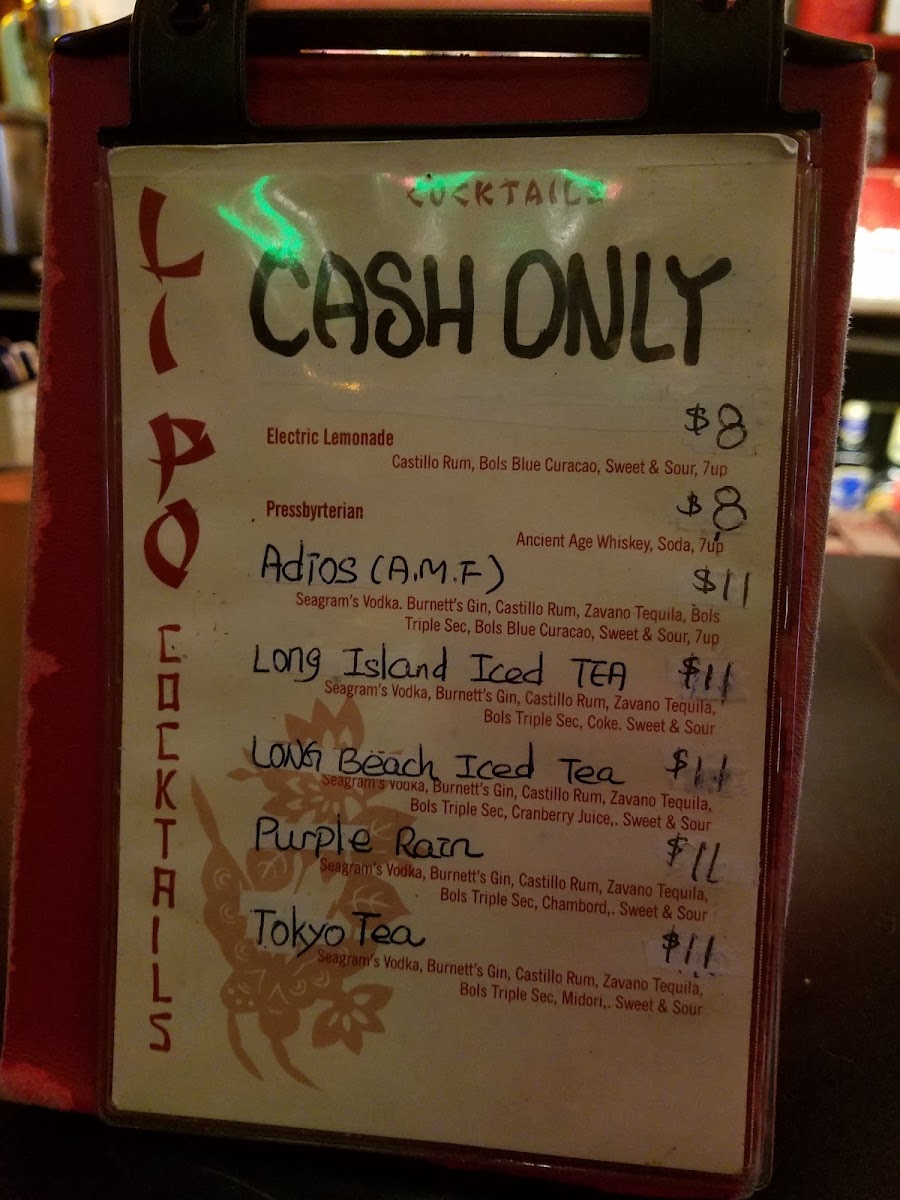 LI PO COCKTAILS
COCKTAILS
CASH ONLY
Electric Lemonade $8
Castillo Rum, Bols Blue Curacao, Sweet & Sour, 7up
Pressbyrterian $8
Ancient Age Whiskey, Soda, 7up
Adios (A.M.F) $11
Seagram's Vodka. Burnett's Gin, Castillo Rum, Zavano Tequila, Bols
Triple Sec, Bols Blue Curacao, Sweet & Sour, 7up
Long Island Iced TEA $11
Seagram's Vodka, Burnett's Gin, Castillo Rum, Zavano Tequila,
Bols Triple Sec, Coke. Sweet & Sour
LONG Beach Iced Tea $11
Seagram's Vodka, Burnett's Gin, Castillo Rum, Zavano Tequila,
Bols Triple Sec, Cranberry Juice,. Sweet & Sour
Purple Rain $11
Seagram's Vodka, Burnett's Gin, Castillo Rum, Zavano Tequila,
Bols Triple Sec, Chambord,. Sweet & Sour
Tokyo Tea $11
Seagram's Vodka, Burnett's Gin, Castillo Rum, Zavano Tequila,
Bols Triple Sec, Midori,. Sweet & Sour